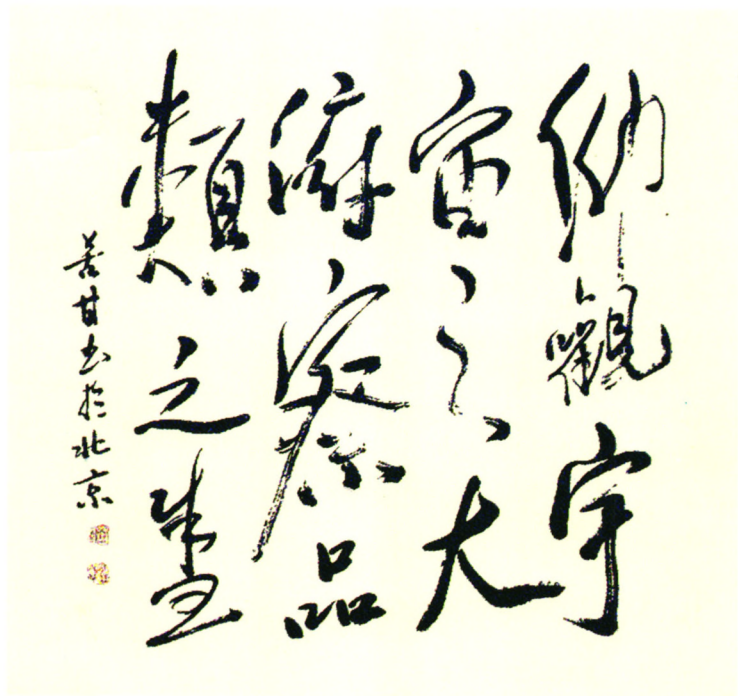 仰觀宇
宙之大
俯察品
類之盛
苦甘书於北京